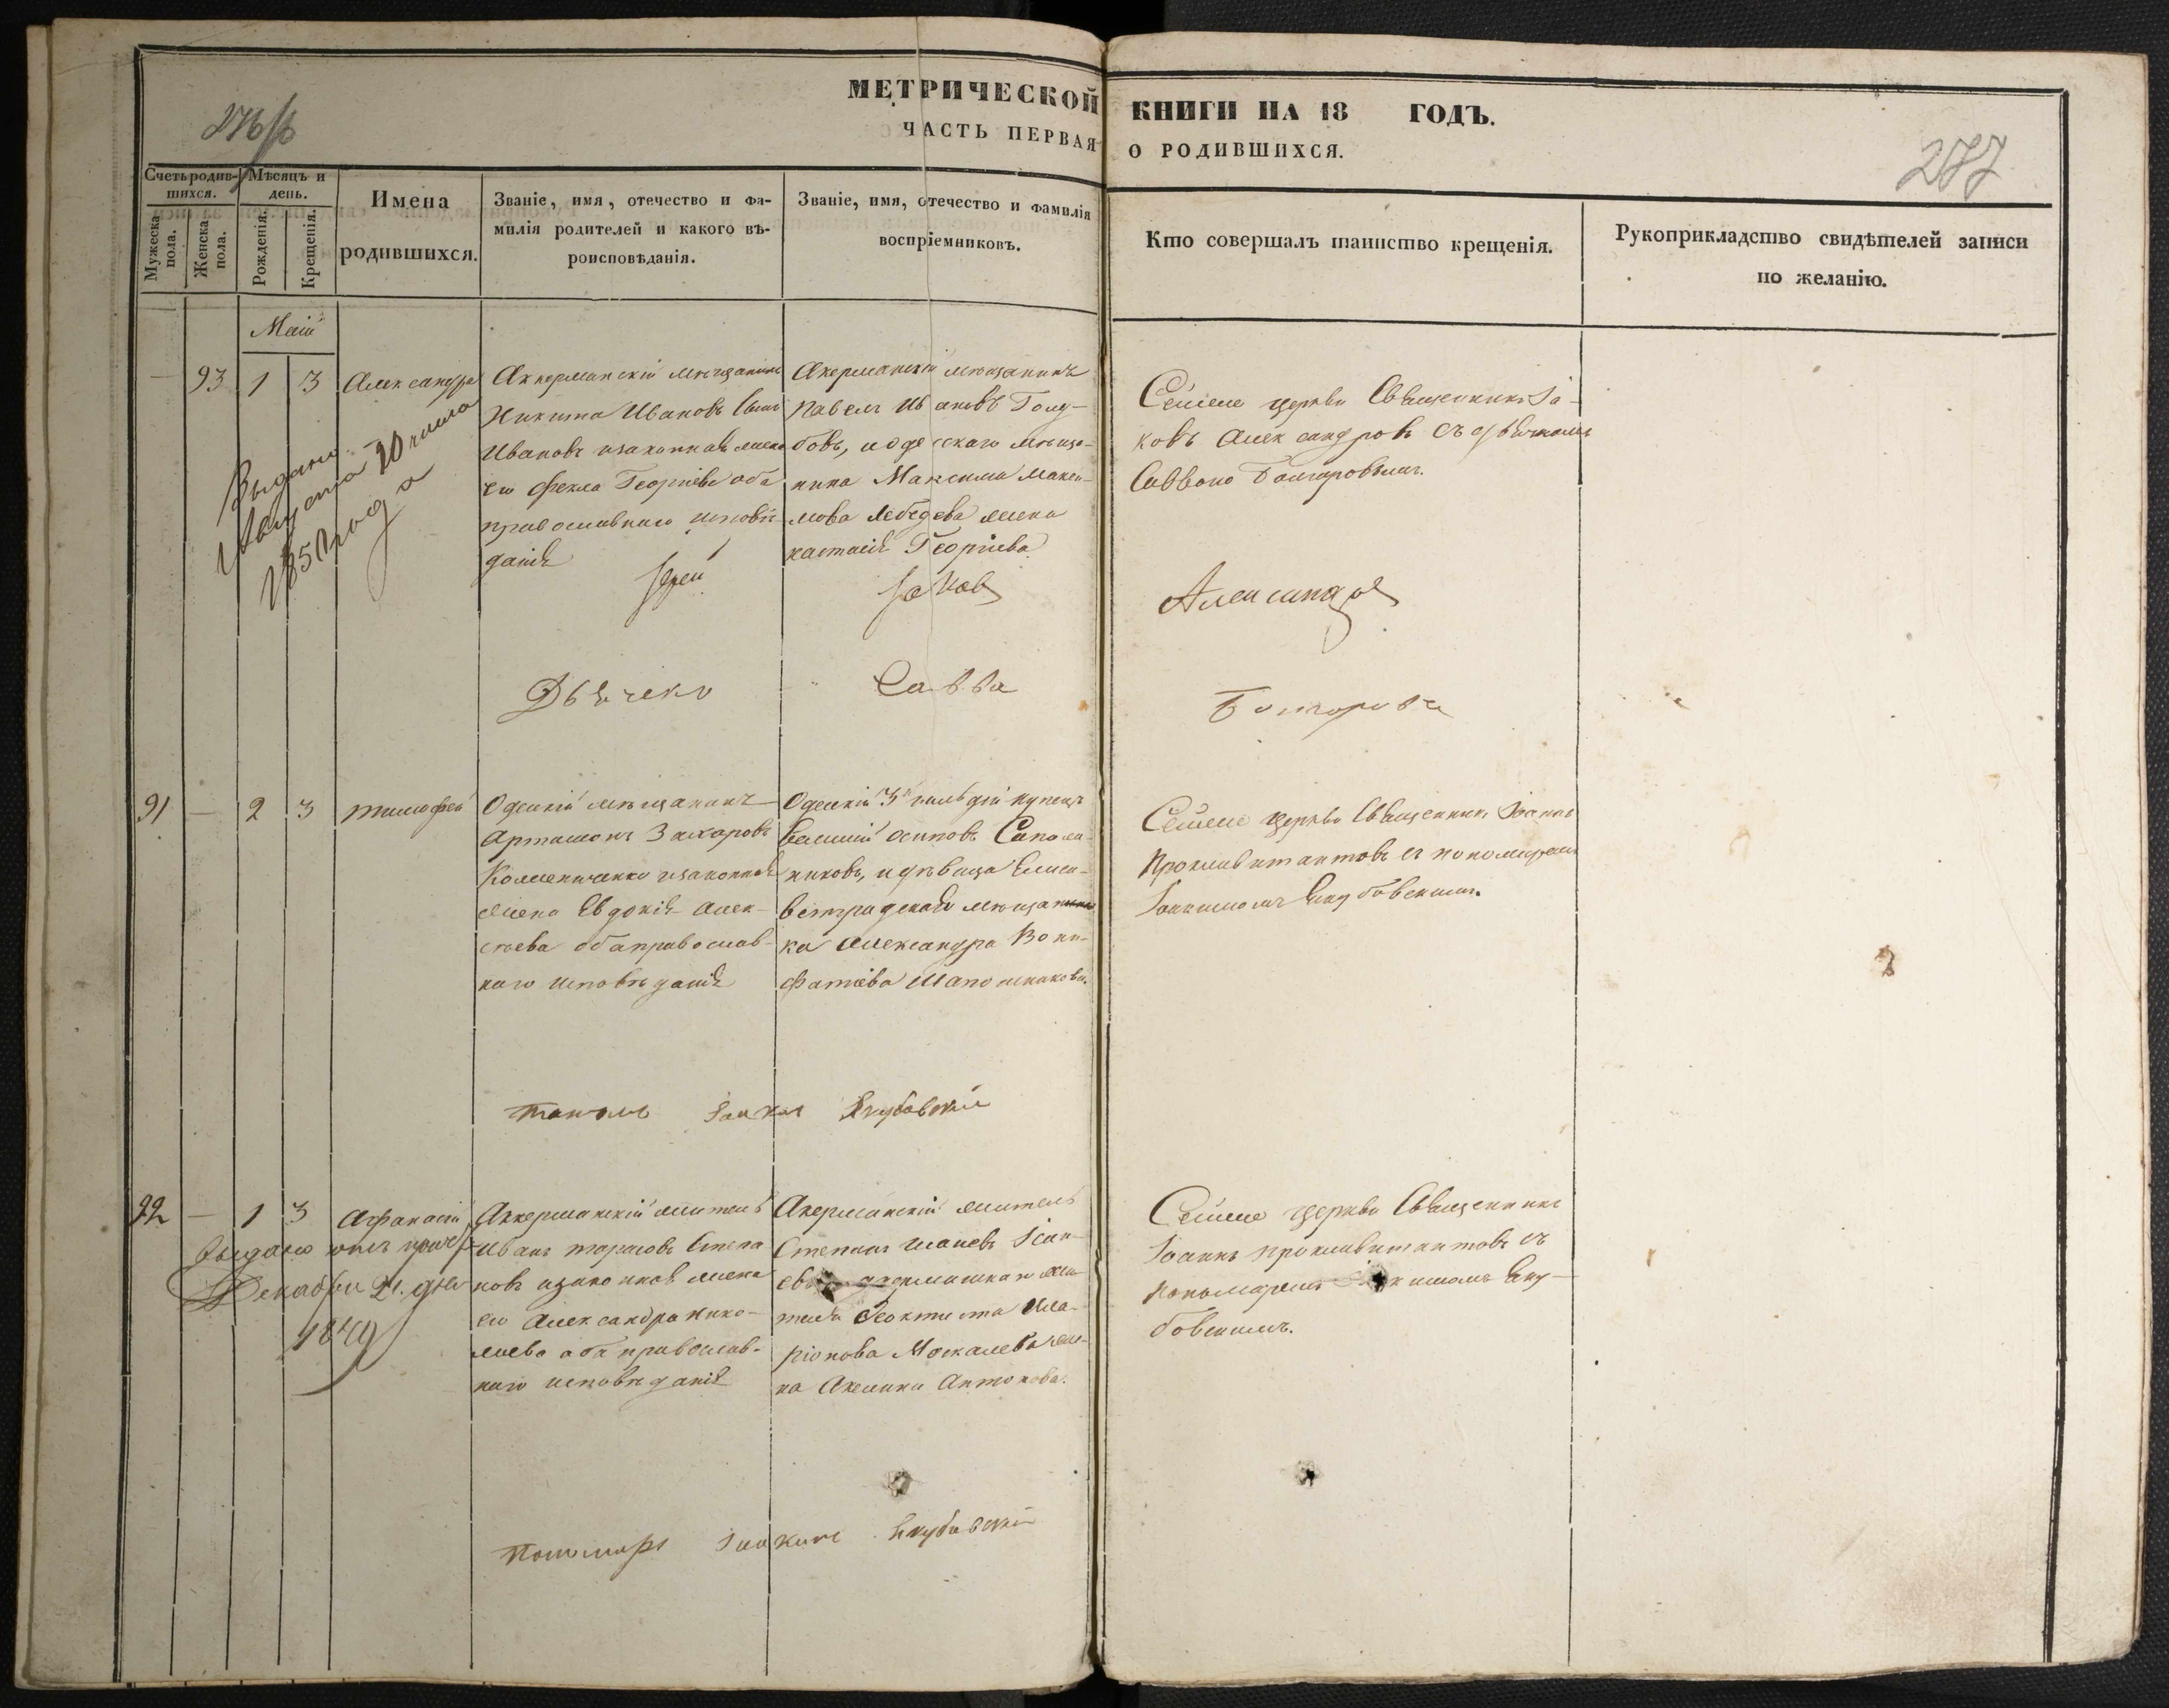 МЕТРИЧЕСКОЙ КНИГИ НА 18 ГОДЪ.
ЧАСТЬ ПЕРВАЯ О РОДИВШИХСЯ.
277
Счетъ родив-
шихся.
Мужеска
пола.
Женска
пола.
Мѣсяцъ и
день.
Рожденія.
Крещенія.
Имена
родившихся.
Званіе, имя, отечество и фа-
милія родителей и какого вѣ-
роисповѣданія.
Званіе, имя, отечество и фамилія
воспріемниковъ.
Кто совершалъ таинство крещенія.
Рукоприкладство свидѣтелей записи
по желанію.
Маій
93 1 3 Александра
Аккерманскій мѣщанинъ
Никита Ивановъ сынъ
Ивановъ изаконная жена
его Фекла Георгіева оба
православнаго исповѣ-
данія
Акерманскій мѣщанинъ
Павелъ Ивановъ Голу-
бовъ, иодесскаго мѣща-
нина Максима Макси-
мова Лебедева жена
настасія Георгіева
Сейже церкви Священникъ Іа-
ковъ Александровъ съ дьячкомъ
Саввою Болгаровымъ.
Выдано
Августа 20 числа
года
Іерей Іаковъ Александровъ
Дьячекъ Савва
91 — 2 3 тимофей
Одескій мѣщанинъ
Артамонъ Захаровъ
изаконная
жена Евдокія Алек-
сѣева оба православ-
наго исповѣданія
Одескій 3й гильдіи купецъ
Василій Осиповъ Сапож-
никовъ, идѣвица Елиса-
ветградская мѣщан
ка Александра Вони-
фатіева Шапошникова.
Сейже церкви Священникъ Іоаннъ
съ пономаремъ
Іоакимомъ Якубовскимъ.
Іоакимъ Якубовскій
92 — 1 3 Афанасій
Аккерманскій житель
Иванъ тарасовъ Степа
новъ изаконная жена
его Александра Нико-
лаева оба православ-
наго исповѣданія
Акерманскій житель
Степанъ
аккерманскаго жи-
теля Феоктиста Ила-
ріонова Москалева жен-
на Аксинія Антонова.
Сейже церкви Священникъ
Іоаннъ съ
пономаремъ Іоакимомъ Яку-
бовскимъ.
Выдано
Декабря 21. дня
1849
Пономарь Іоакимъ Якубовскій